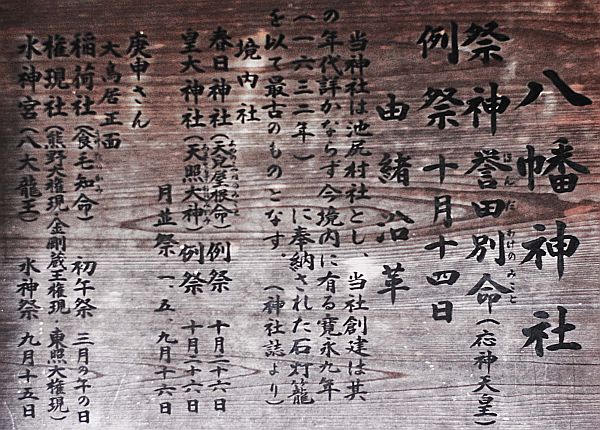 八幡神社
祭神 誉田別命(応神天皇)
ほんだわけのみこと
例祭 十月十四日
由緒沿革
当神社は池尻村社とし、当社創建は其
の年代詳かならず今境内に有る寛永九年
(一六三二年)に奉納された石灯籠
を以て最古のものとなす。(神社誌より)
境内社
春日神社(天児屋根命)例祭 十月二十六日
皇大神社(天照大神)例祭 十月二十六日
月並祭 一、五、九月十六日
庚申さん
大鳥居正面
稲荷社(食毛知命) 初午祭 三月の午の日
権現社(熊野大権現・金剛蔵王権現 東照大権現)
水神宮(八大龍王) 水神祭 九月十五日